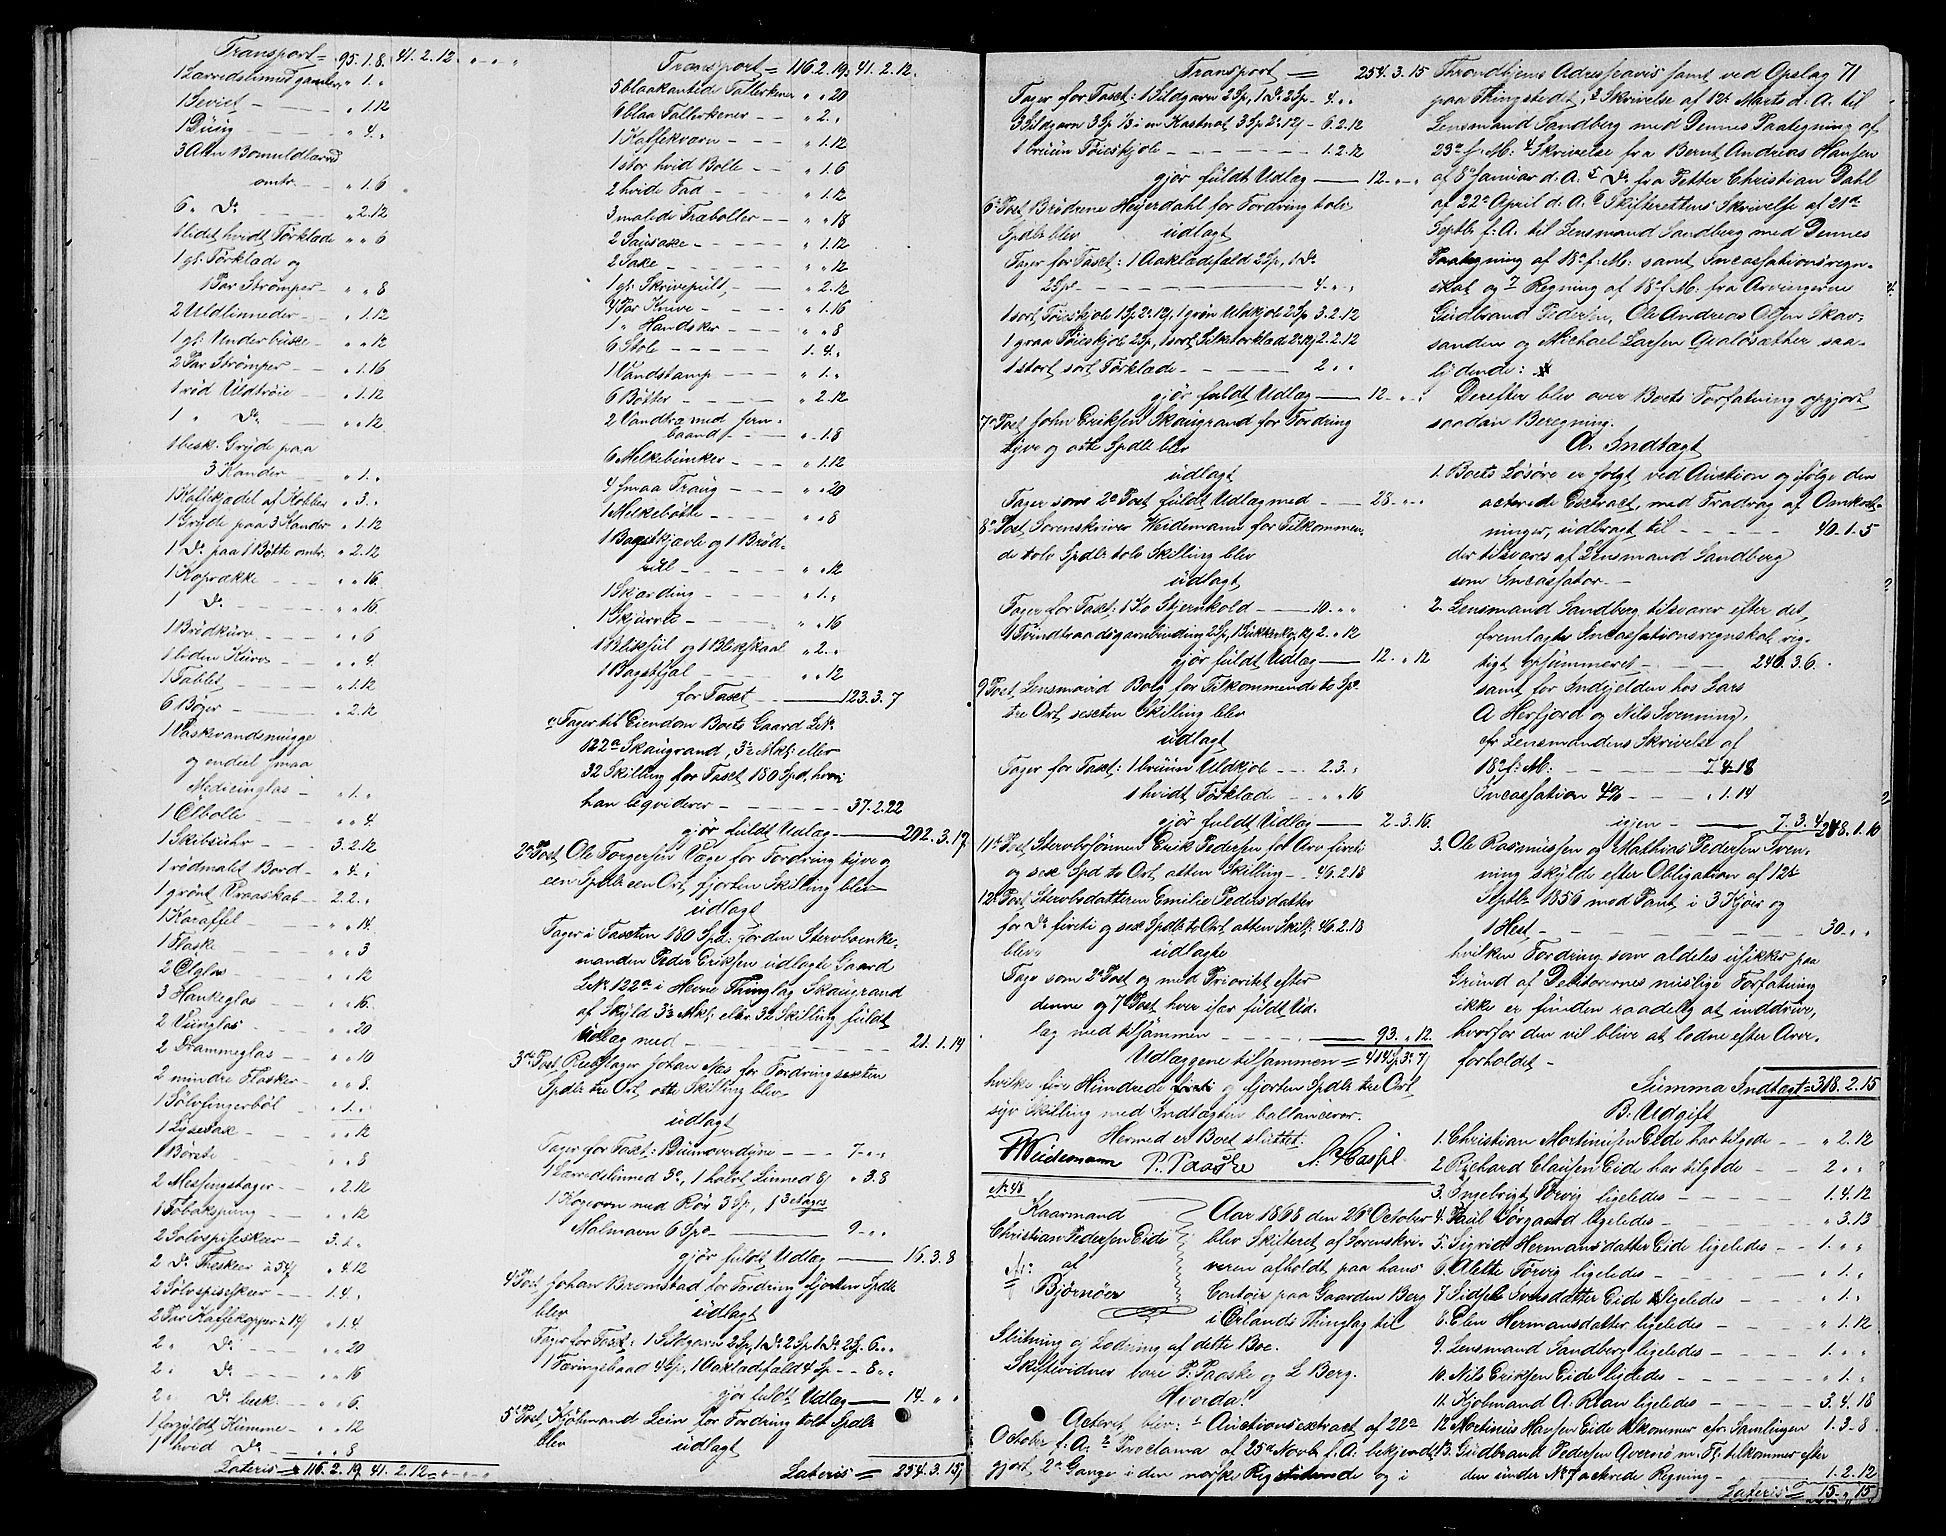 Transport = 95.1.8. 41.2.12. " " "
1 Lærredslinned gamler " 1. "
1 Seviet " 1.12
1 Dúg " 4. "
3 Alen Bomuldlærred
omtr. " 1.6
6 " Do " 2.12
1 lidet hvidt Törklæde " " 6
1 gl. Törklæde og
1 Par Strömper " " 8
2 Uldlinneder " 1.12
1 gl. Underbúxe " " 12
2 Par Strömper " 1.16
1 röd Uldtröie " 1.12
1 " Do " " 12
1 besk. Gryde paa
3 Kander " 1. "
1 Kaffekjedel af Kobber " 3. "
1 Gryde paa 3 Kander " 1.12
1 Do paa 1 Bötte omtr. " 2.12
1 Koprække " " 16
1 Do " " 16
1 Brödkúrv " " 6
1 liden Kúrv " " 4.
1 Tablet " 1.12
6 Böger " 2.12
1 Vaskevandsmugge
og endeel smaa
Medicinglas " 1. "
1 Ölbolle " " 4.
1 Skibsúhr 3.2.12
1 rödmalet Bord " 4. "
1 grönt Vraaskab 2.2. "
1 Karaffel " " 14.
1 Flaske " " 3
2 Ölglas " " 12
3 Hankeglas " " 16.
2 Viinglas " " 20
2 Drammeglas " " 10
2 mindre Flasker " " 8.
1 Sölvfingerböl " 1. "
1 Lysesax " " 12
1 Börste " " 8
2 Messingstager " 2.12
1 Tobakspung " " 12
2 Sölvspiseskeer 3. 1. "
2 Do Theskeer à 54 β " 4.12
2 Sölvspiseskeer 1.4. "
2 Par Kaffekopper à 14 β " 1.4.
2 " Do " " 20
2 " Do " " 16
2 " Do besk. " " 6.
1 forgyldt Kúmme " " 12
1 hvid Do " " 8
Lateris = 116.2.19. 41.2.12 = " " "
Transport = 116.2.19. 41.2.12.
5 blaakantede Tallerkener " " 20
6 blaa Tallerkener " 2. "
1 Kaffekværn " 1.12
1 stor hvid Bolle " 1.6
2 hvide Fad " 1.12
3 malede Træboller " " 18
2 Saúsaxe " 1.12
2 Saxe " " 12
1 gl. Skrivepúlt " 2.12
4 Par Knive " 1.16
1 " Handsker " " 8
6 Stole 1.4. "
1 Vandstamp " 1. "
6 Bötter " 2.12
2 Vandtræ med Jern-
baand " 1.8
6 Melkebúnker " 1.12
4 smaa Traug " " 20
1 Melkebötte " " 8
1 Bagstkjævle og 1 Bröd-
" " 12
1 Skjæding " 1. "
1 Skúvrte " " 16
1 Bliksúl og 1 Blikskaal " 2. "
1 Bagstfjæl " " 12
for Taxt 123.3.7
" Tager til Eiendom Boets Gaard LNo
122a Skaugrand, 3½ Mkl: eller
32 Skilling for Taxt 180 Spd, hvori
han liqviderer 37.2.22
gjör fúldt Udlæg 202.3.17.
2den Post Ole Torgersen Væge for Fordring tyve og
een Spdlr een Ort fjorten Skilling blev
údlagt
Tager i Taxten 180 Spd: for den Stervboenke-
manden Peder Eriksen údlagte Gaard
LNo 122a i Hevne Thinglag Skaugrand
af Skyld 3½ Mkl: eller 32 Skilling fúldt
Udlæg med 21.1.14
3die Post, Rebslager Johan Næs for Fordring sexten
Spdlr tre Ort, otte Skilling blev
údlagt
Tager for Taxt: 1 Dúunoverdyne 7. " "
4 Lærredslinned 3 o, 1 halvt Linned 8 β " 3.8
1 Kogeovn med Rör 3 Sp, 1 3 Etages
Malmovn 6 Spd 9. " "
gjör fúldt Udlæg 16.3.8
4de Post, Johan Bromstad for Fordring fjorten Spdlr
blev údlagt
Tager for Taxt: 1 Sildgarn 2 Sp, 1 Do 2 Sp 1 Do 2 Sp. 6. " "
1 Færingsbaad 4 Sp, 1 Aaklædfæld 4 Sp 8 " "
gjör fúldt Udlæg 14. " "
5te Post, Kjöbmand Lein for Fordring tolv Spdlr
blev údlagt
Lateris = 254.3.15 β
Transport = 254.3.15
Tager for Taxt: 1 Sildgarn 2 Sp, 1 Do 2 Sp 4. " "
3 Sildgarn 3 Sp ⅓ i en Kastnot 3 Sp 2 o 12 β 6.2.12
1 brúun Töieskjole 1.2.12
gjör fúldt Udlæg 12. " "
6te Post Brödrene Heyerdahl for Fordring tolv
Spdlr blev údlagt
Tager for Taxt: 1 Aaklædefæld 2 Sp, 1 Do
2 Spd 4. " "
1 sort Töieskjole 1 Sp 2 o 12 β, 1 grön Uldkjole 2 Sp 3.2.12
1 graa Töieskjole 2 Sp, 1 sort Silketörklæd 2 o 12 β 2.2.12
1 stort sort Törklæde 2 " "
gjör fúldt Udlæg 12. " "
7de Post John Eriksen Skaugrand for Fordring
tyve og otte Spdlr blev
údlagt
Tager som 2den Post fúldt Udlæg med 28. " "
8de Post Sorenskriver Weidemann for Tilkommen-
de tolv Spdlr tolv Skilling blev
údlagt
Tager for Taxt: 1 Ko Stjernkold 10. " "
4 Toindtraadsgarnbinding 2 Sp, 1 12 β 2. " 12
gjör fúldt Udlæg 12. " 12
9de Post, Lensmand Bolg for Tilkommende to Spd
tre Ort sexten Skilling blev
údlagt
Tager for Taxt: 1 brúun Uldkjole 2.3. "
1 hvidt Törklæde " " 16
gjör fúldt Udlæg 2.3.16.
11te Post Stervbosönnen Erik Pedersen for Arv firti
og sex Spd to Ort, atten Skilling 46.2.18
12te Post Stervbodatteren Emilie Pedersdatter
for Do firti og sex Spdlr to Ort atten Skill. 46.2.18
blev údlagte
Tage som 2den Post og med Prioritet efter
denne og 7de Post hver især fúldt Ud-
læg med tilsammen 93. " 12.
Udlæggene tilsammen = 414 Sp 3 o 7 β
hvilke fire Húndrede firti og fjorten Spdlr tre Ort
syv Skilling med Indtægten ballancerer.
Hermed er Boet slúttet.
Weidemann P. Paaske N. Hassel
No 48
Kaarmand
Christian Pedersen Eide
af
Björnöer
Aar 1868 den 26de October
blev Skifteret af Sorenskri-
veren afholdt paa hans
Contoir paa Gaarden Berg
i Örlands Thinglag til
Slútning og Lodning af dette Boe.
Skiftevidner vare P. Paaske og L Berg.
Hvorda!!
Acteret blev: 1 Auctionsextract af 22de
October f. A. 2 Proclama af 25de Novbr f. A. bekjendt-
gjort 2de Gange i den norske Rigstidende og i
Throndhjems Adresseavis samt ved Opslag 71
paa Thingstedet, 3 Skrivelse af 12te Marts d. A. til
Lensmand Sandberg med Dennes Paategning af
23de f. M: 4 Skrivelse fra Bernt Andreas Hansen
af 8de Januar d. A. 5 Do fra Petter Christian Dahl
af 22de April d. A. 6 Skifterettens Skrivelse af 21de
Septbr f. A. til Lensmand Sandberg med Dennes
Paategning af 18de f. M: samt Incassationsregn-
skab og 7 Regning af 18de f. M: fra Arvingerne
Gúdbrand Pedersen, Ole Andreas Olsen Skav-
sanden og Michael Larsen Qvalösæther saa-
lydende:
Derefter blev over Boets Forfatning opgjort
saadan Beregning.
A. Indtægt
1. Boets Lösöre er solgt ved Auction og ifölge den
acterede Extract, med Fradrag af Omkost-
ninger, údbragt til 40.1.5
der tilsvares af Lensmand Sandberg
som Incassator.
2. Lensmand Sandberg tilsvarer efter det
fremlagte Incassationsregnskab rig-
tigt opsúmmeret 240.3.6.
samt for Indgjelden hos Lars
A Herfjord og Nils Svenning,
cfr Lensmandens Skrivelse af
18de f. M: 7.4.18
Incassation 4% " 1.14
igjen 7.3.4 248.1.10
3. Ole Rasmussen og Mathias Pedersen Sven-
ning skylde efter Obligation af 12te
Septbr 1856 med Pant i 3 Kjöer og
1 Hest 30. " "
hvilken Fordring som aldeles úsikker paa
Grúnd af Debitorernes mislige Forfatning
ikke er fúnden raadelig at inddrive,
hvorfor den vil blive at lodne efter Arve-
forholdet
Súmma Indtægt = 318.2.15
B. Udgift
1. Christian Martinúsen Eide har tilgode " 2.12
2 Richard Claúsen Eide har tilgode 2 " "
3. Ingebrigt Tørvig ligeledes 1.4.12
4. Paúl Sörgaard ligeledes " 3.13
5. Sigrid Hermansdatter Eide ligeledes 1. " "
6. Alette Tørvig ligeledes " 1. "
7 Sidsel Iversdatter Eide ligeledes " 1. "
8. Elen Hermansdatter ligeledes " 1.12
9. Lensmand Sandberg ligeledes 1. " "
10. Nils Eriksen Eide ligeledes " 1. "
11. Kjöbmand A. Raan ligeledes 3.4.18
12 Martinús Hansen Eide tilkommer cfr Samlingen 1.3.8.
13. Gúdbrand Pedersen Qvernö m. Fl. tilkommer efter
den únder No 7 acterede Regning 1.2.12
Lateris = 15. " 15